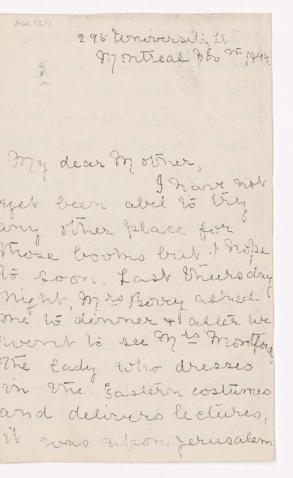 295 University St
Montreal Nov
My dear Mother,
I have not
yet been abel to try
any other place for
those books but I hope
to soon. Last Thursday
night, Mrs asked
me to dinner & after we
went to see Mrs Montford
the lady who dresses
in the Eastern costumes
and delivers lectures,
it was upon Jerusalem